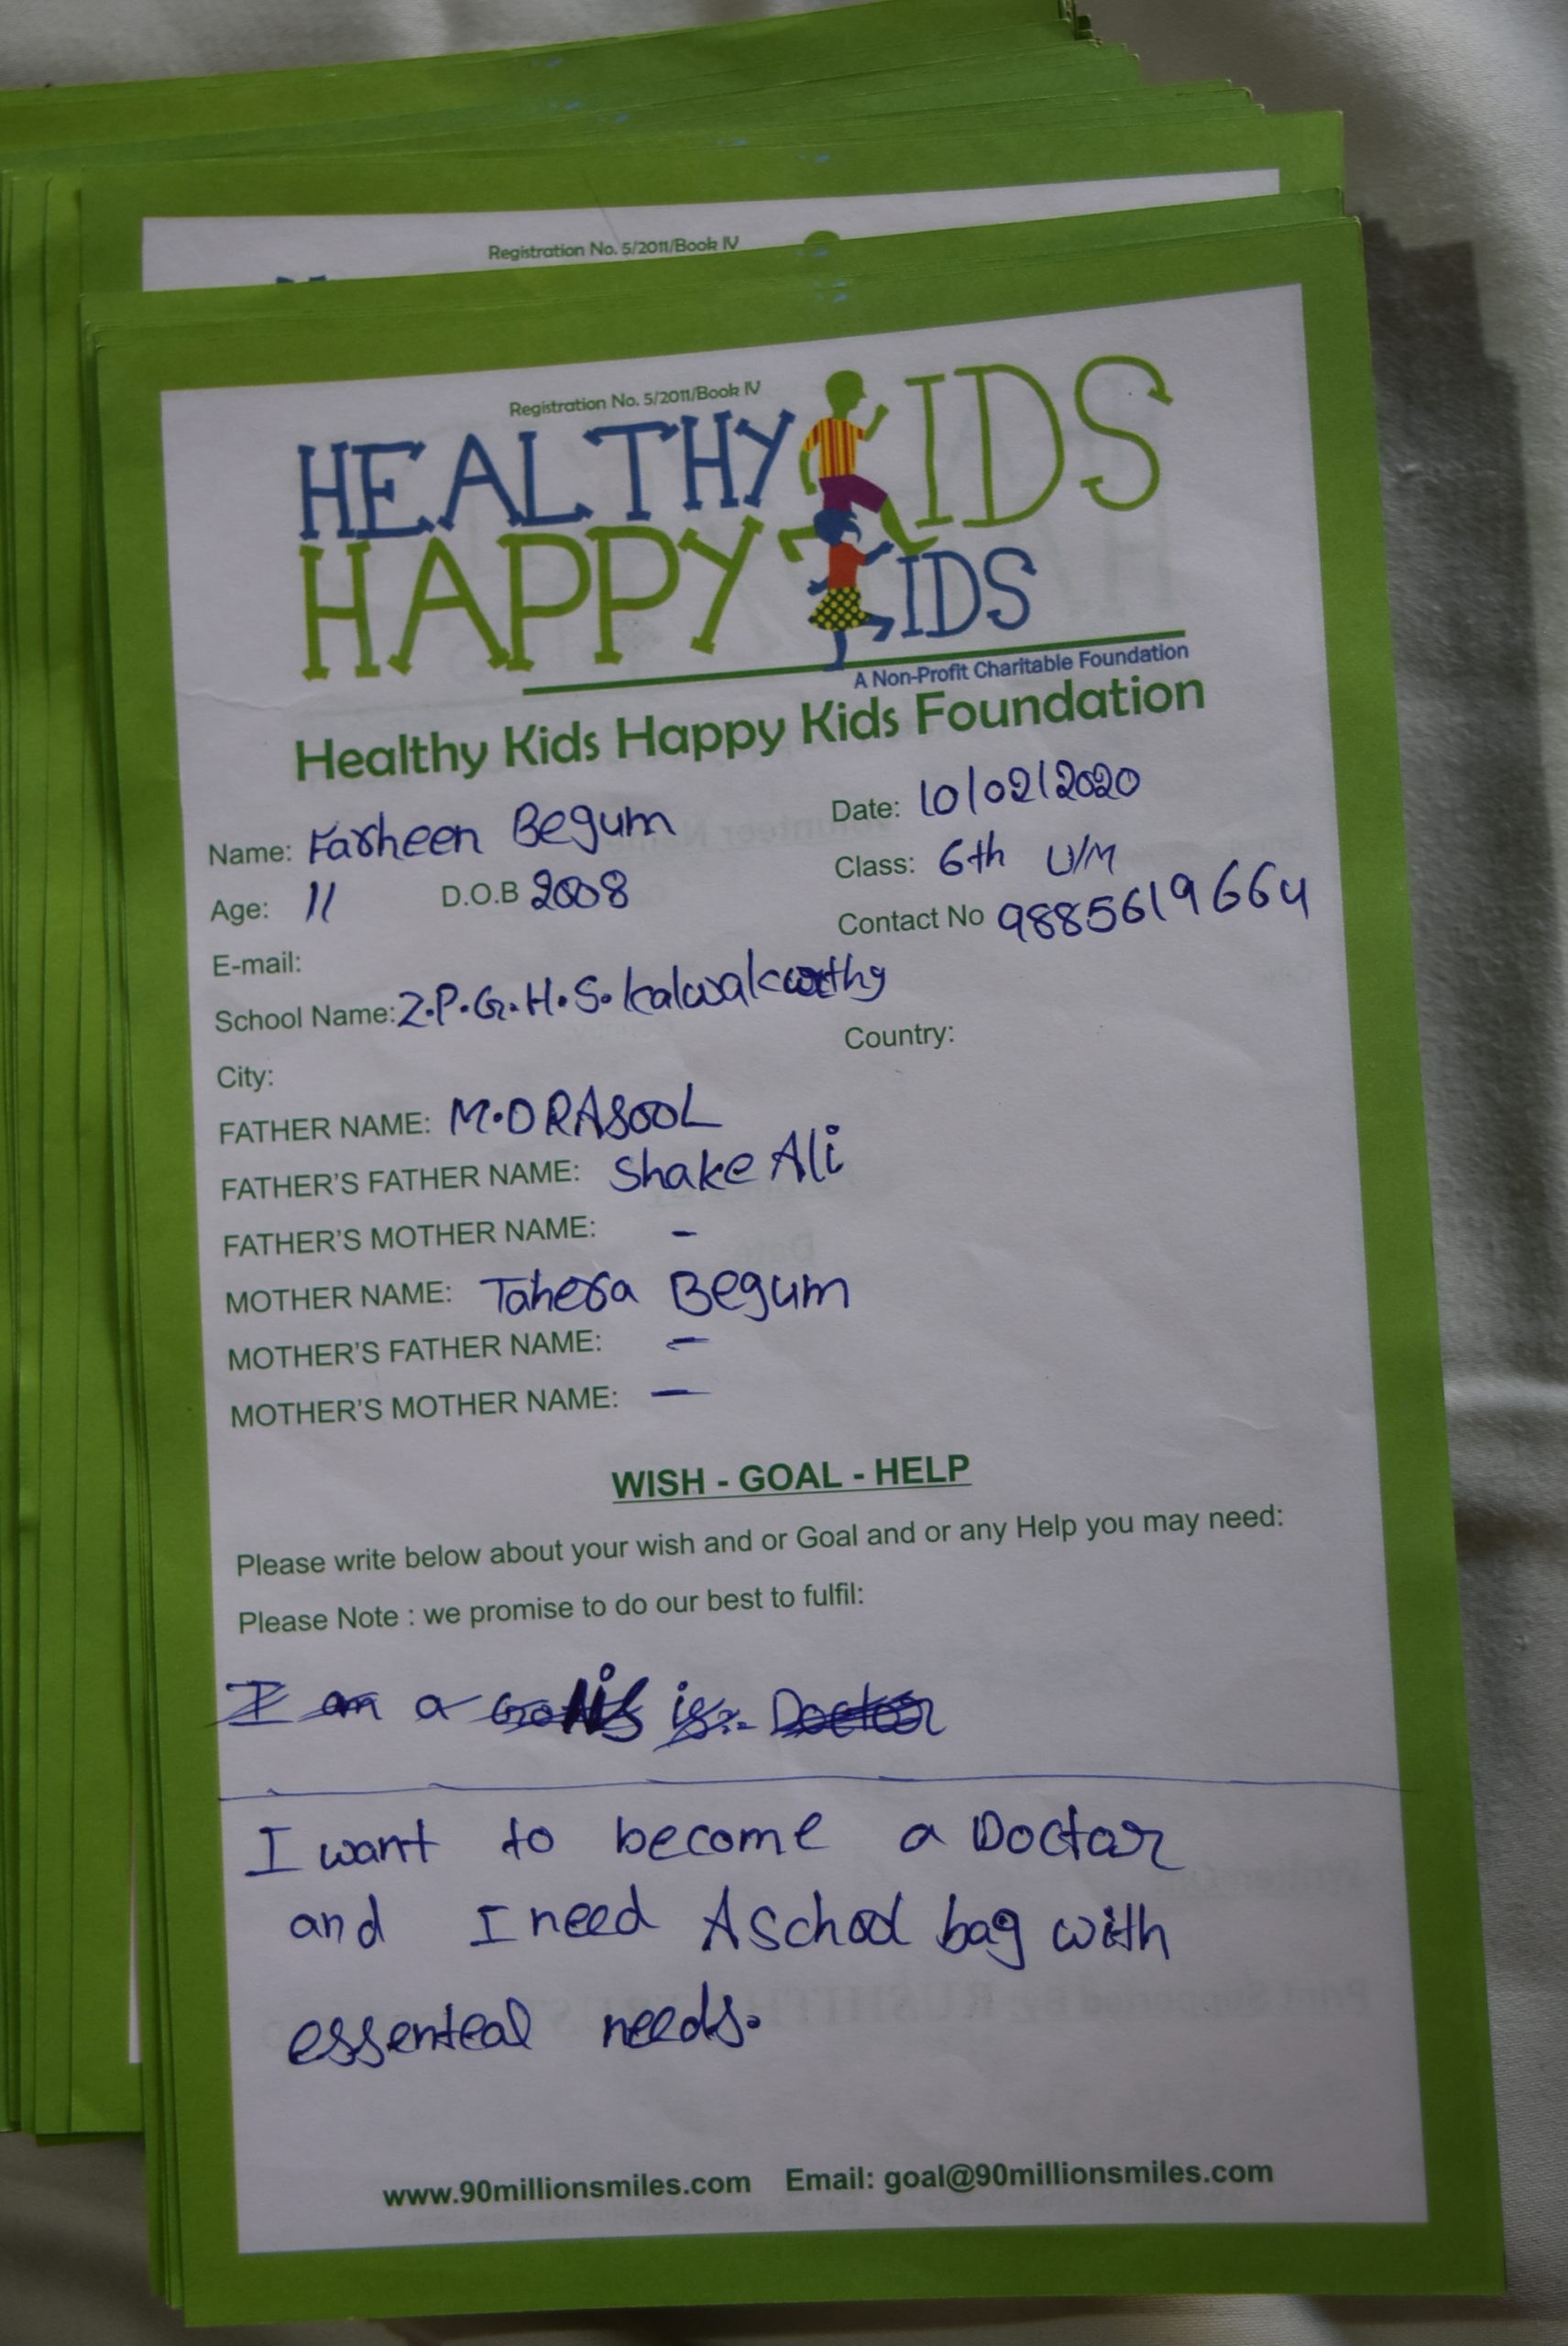 Registration No. 5/2011/Book IV
Registration No. 5/2011/Book IV
HEALTHY KIDS
HAPPY KIDS
A Non-Profit Charitable Foundation
Healthy Kids Happy Kids Foundation
Name: Farheen Begum Date: 10/02/2020
Age: 11 D.O.B 2008 Class: 6th U/M
Contact No 9885619664
E-mail:
School Name: Z.P.G.H.S. kalwakurthy
City: Country:
FATHER NAME: M.D RASOOL
FATHER'S FATHER NAME: Shake Ali
FATHER'S MOTHER NAME: -
MOTHER NAME: Tahera Begum
MOTHER'S FATHER NAME: -
MOTHER'S MOTHER NAME: -
WISH - GOAL - HELP
Please write below about your wish and or Goal and or any Help you may need:
Please Note : we promise to do our best to fulfil:
I am a is Doctor
I want to become a Doctar
and I need A school bag with
essenteal needs.
www.90millionsmiles.com Email: goal@90millionsmiles.com